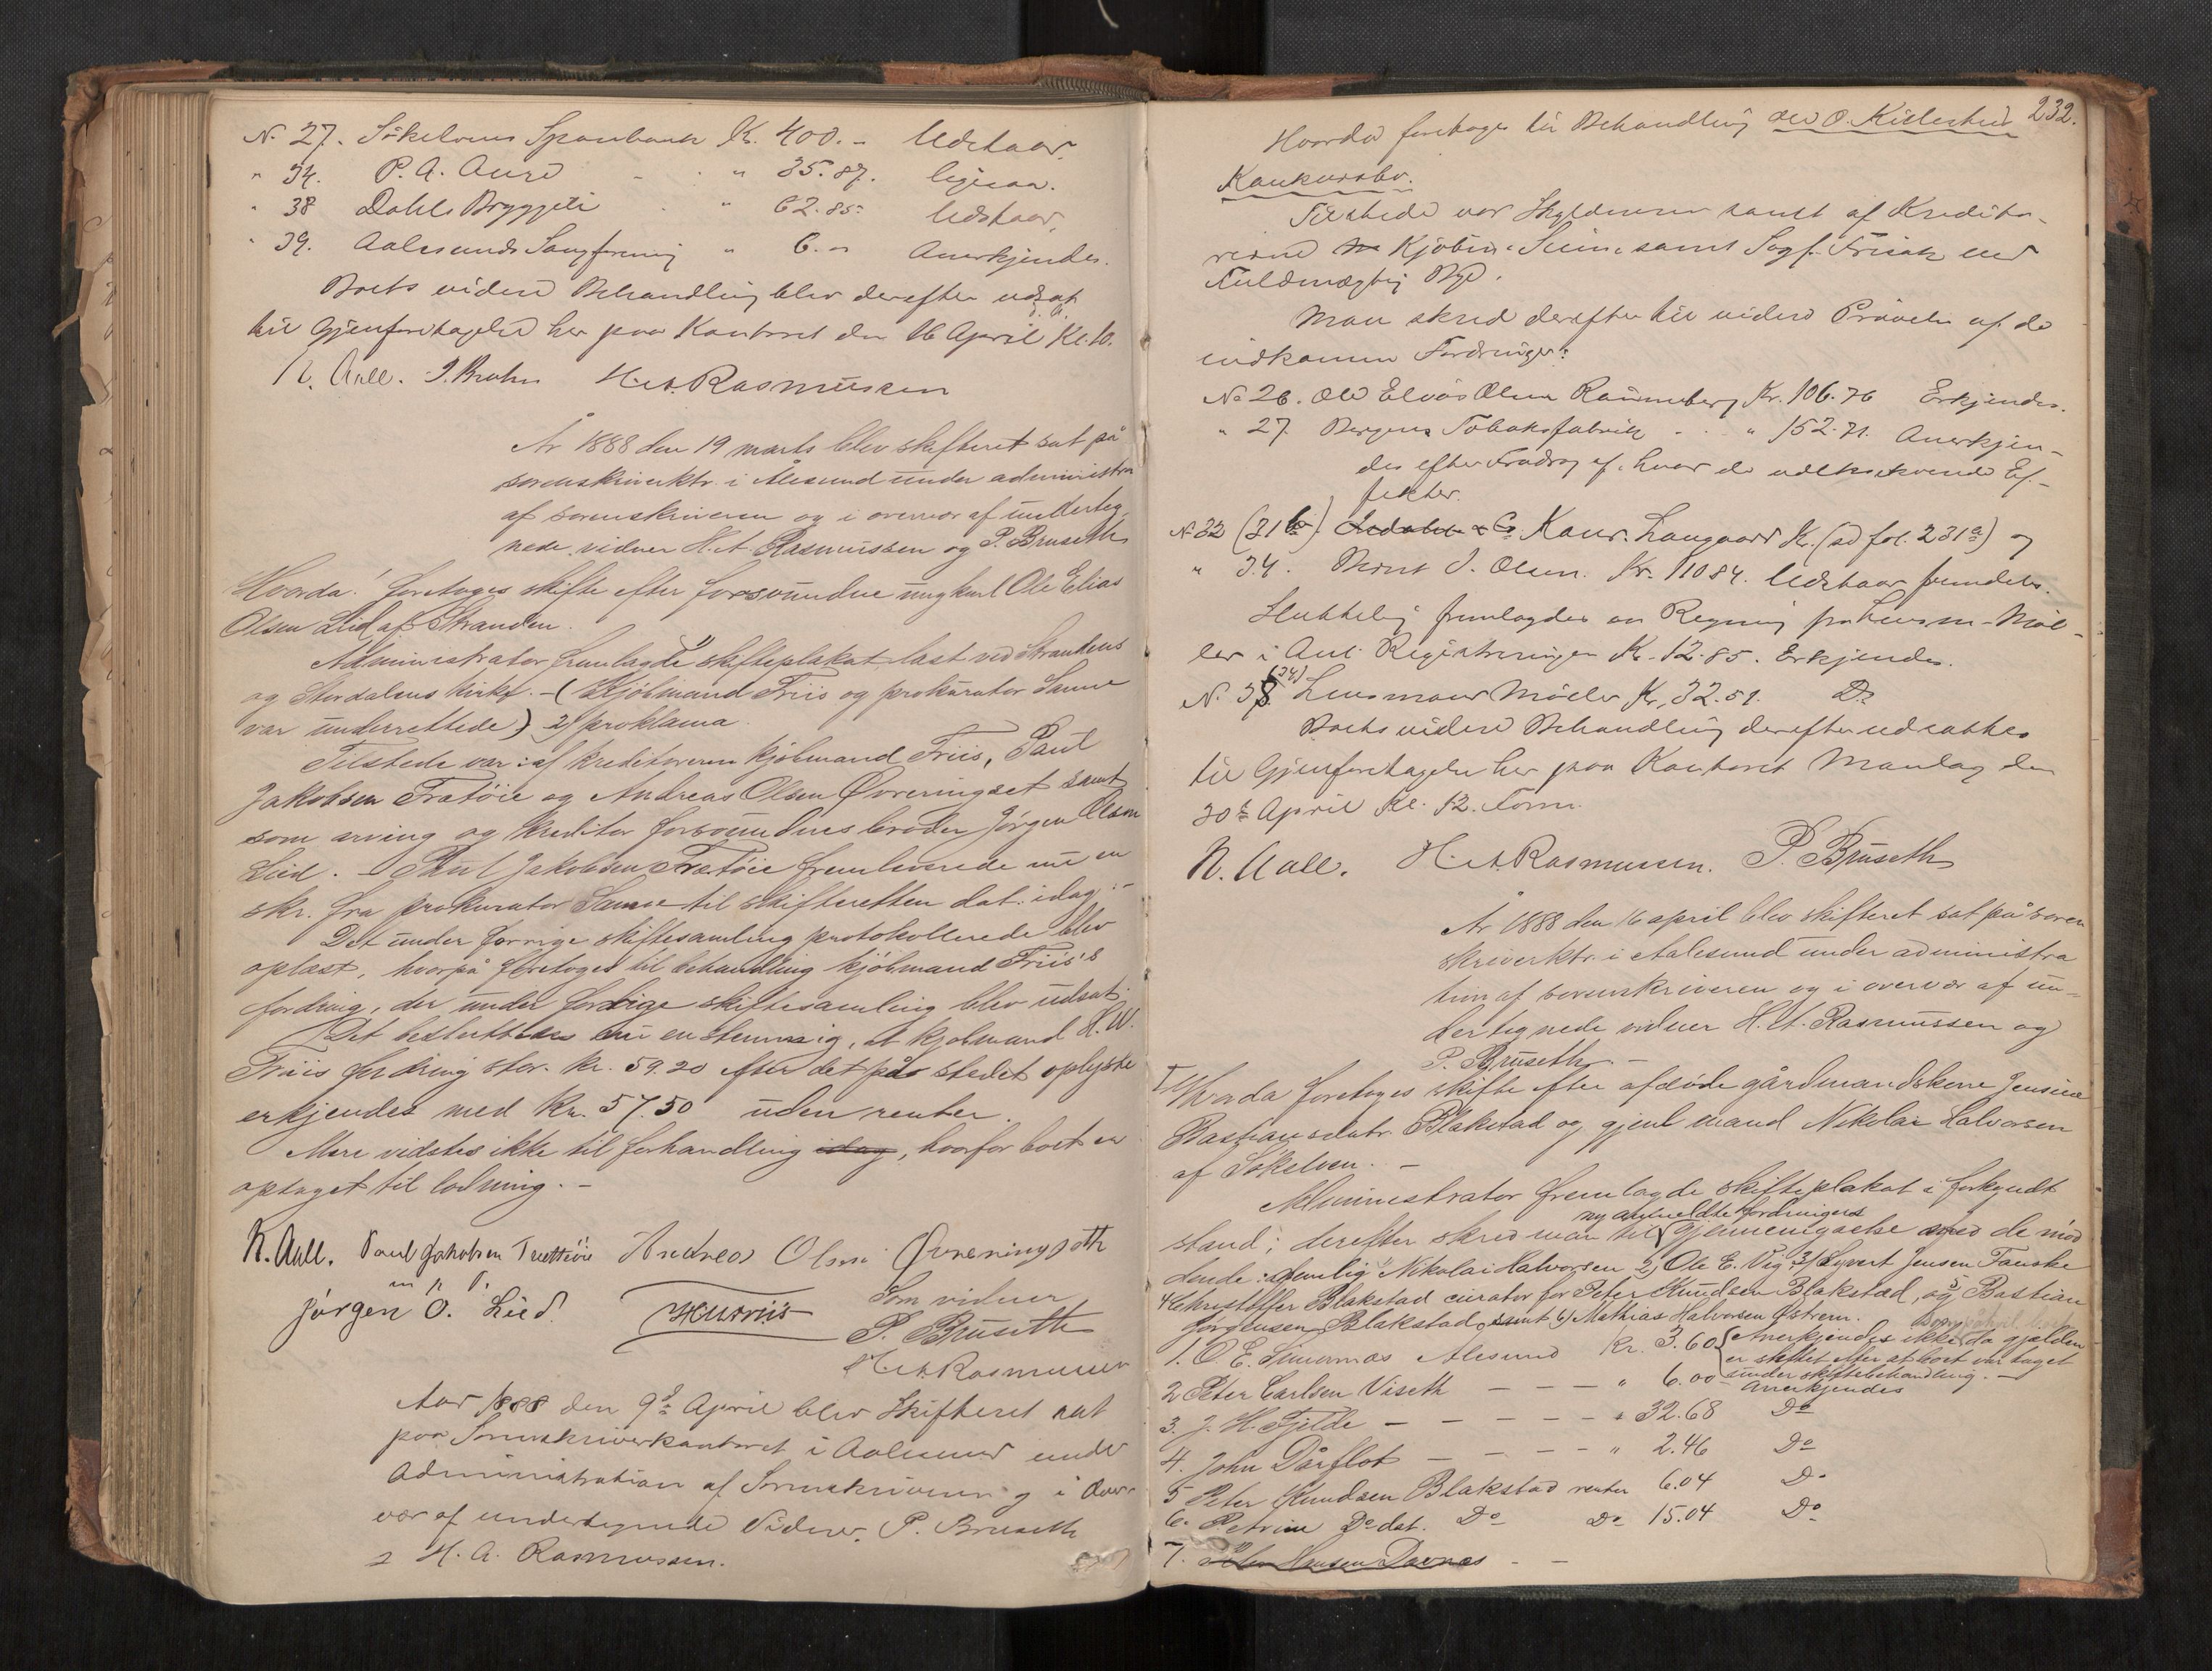 N. 27. Sökelvens Sparebank Kr. 400.- Udstaar.
" 34. P. A. Aure - - " 35.87. ligesaa.
" 38 Dahls Bryggeri - " 62.85 Udstaar,
" 39. Aalesunds Sangforening " 6.- Anerkjendes.
Boets videre Behandling blev derefter udsat
til Gjenforetagelse her paa Kontoret den 16 April Kl. 10.
N. Aall. J. Bruhn H. A. Rasmussen
År 1888 den 19 marts blev skifteret sat på
sorenskriverktr. i Ålesund under administra
af sorenskriveren og i overvær af underteg-
nede vidner H. A. Rasmussen og P. Bruseth
Hvorda! foretoges skifte efter forsvundne ungkarl Ole Elias
Olsen Lied af Stranden.
Administrator fremlagde 1) skifteplakat læst ved Strandens
og Stordalens kirke. - (Kjöbmand Friis og prokurator Sanne
var underrettede) 2) proklama.
Tilstede var: af kreditorerne kjöbmand Friis, Paul
Jakobsen Trætöie og Andreas Olsen Övreningset samt
som arving og kreditor forsvundnes broder Jörgen Olsen
Lied. - Paul Jakobsen Trætöie fremleverede nu en
skr. fra prokurator Sanne til skifteretten dat. idag. -
Det under forrige skiftesamling protokollerede blev
oplæst, hvorpå foretoges til behandling kjöbmand Friis's
fordring, der under forrige skiftesamling blev udsat.
Det besluttedes nu enstemmig, at kjöbmand H. W.
Friis fordring stor kr. 59.20 efter det på stedet oplyste
erkjendes med kr. 57.50 uden renter.
Mere vidstes ikke til forhandling idag, hvorfor boet er
optaget til lodning. -
N. Aall. Paul Jakobsen Trættöie Andreas Olsen Övreningseth
m. p. P.
Jörgen O. Lied. HWFriis Som vidner
P. Bruseth
H. A. Rasmussen
Aar 1888 den 9de April blev Skifteret sat
paa Sorenskriverkontoret i Aalesund under
Administration af Sorenskriveren og i Over-
vær af undertegnede Vidner. P. Bruseth
& H. A. Rasmussen.
232.
Hvorda foretages til Behandling Ole O. Killestads
Konkursbo.
Tilstede var Skyldneren samt af Kredito-
rerne Kjöbm. samt Sagf. Frisak ved
Fuldmægtig Bye.
Man skred derefter til videre Prövelse af de
indkomne Fordringer:
No 26. Ole Elias Olsen Ramneberg Kr. 106.76 Erkjendes.
" 27. Bergens Tobaksfabrik - - " 152.71. Anerkjen-
des efter Fradrag af hvad de udleverede Ef-
fekter.
N. 32 (31 b). & Co Langaard Kr. (ad fol. 231a) og
" 34. Bernt J. Olsen. Kr. 110 84. Udstaar fremdeles.
Sluttelig fremlagdes en Regning fra Lensm. Möl-
ler i Anl. Registreringen Kr. 12.85. Erkjendes.
N. 38 (34) Lensmand Möller Kr. 32.51. Do
Boets videre Behandling derefter udsattes
til Gjenforetagelse her paa Kontoret Mandag den
30te April Kl. 12. Form.
N. Aall. H. A. Rasmussen. P. Bruseth
År 1888 den 16 april blev skifteret sat på soren
skriverktr. i Aalesund under administra
tion af sorenskriveren og i overvær af un-
dertegnede vidner H. A. Rasmussen og
P. Bruseth. -
Hvorda foretoges skifte efter afdöde gårdmandskone Jensine
Bastiansdatr. Blakstad og gjenl. mand Nikolai Halvorsen
af Sökelven. -
Administrator fremlagde skifteplakat i forkyndt
ny anmeldte fordringers
stand; derefter skred man til gjennemgaaelse med de mö
dende: nemlig Nikolai Halvorsen 2) Ole E. Vig 3) Syvert Jensen Fauske
4 Christoffer Blakstad curator for Peter Knudsen Blakstad, og 5) Bastian
Jörgensen Blakstad samt 6) Mathias Halvorsen Östrem.
1. O. E. Simonnæs Ålesund Kr. 3.60 { Anerkjendes ikke da gjælden
er stiftet efter at boet var taget
under skiftebehandling. -
2 Peter Carlsen Viseth - - - " 6.00 Anerkjendes
3. J. H. Fjelde - - - - - " 32.68 Do
4. John Dårflot - - - - " 2.46 Do
5 Peter Knudsen Blakstad renter 6.04 Do
6. Petrine Do dat. Do Do 15.04 Do
7. Hansen Davnæs - -